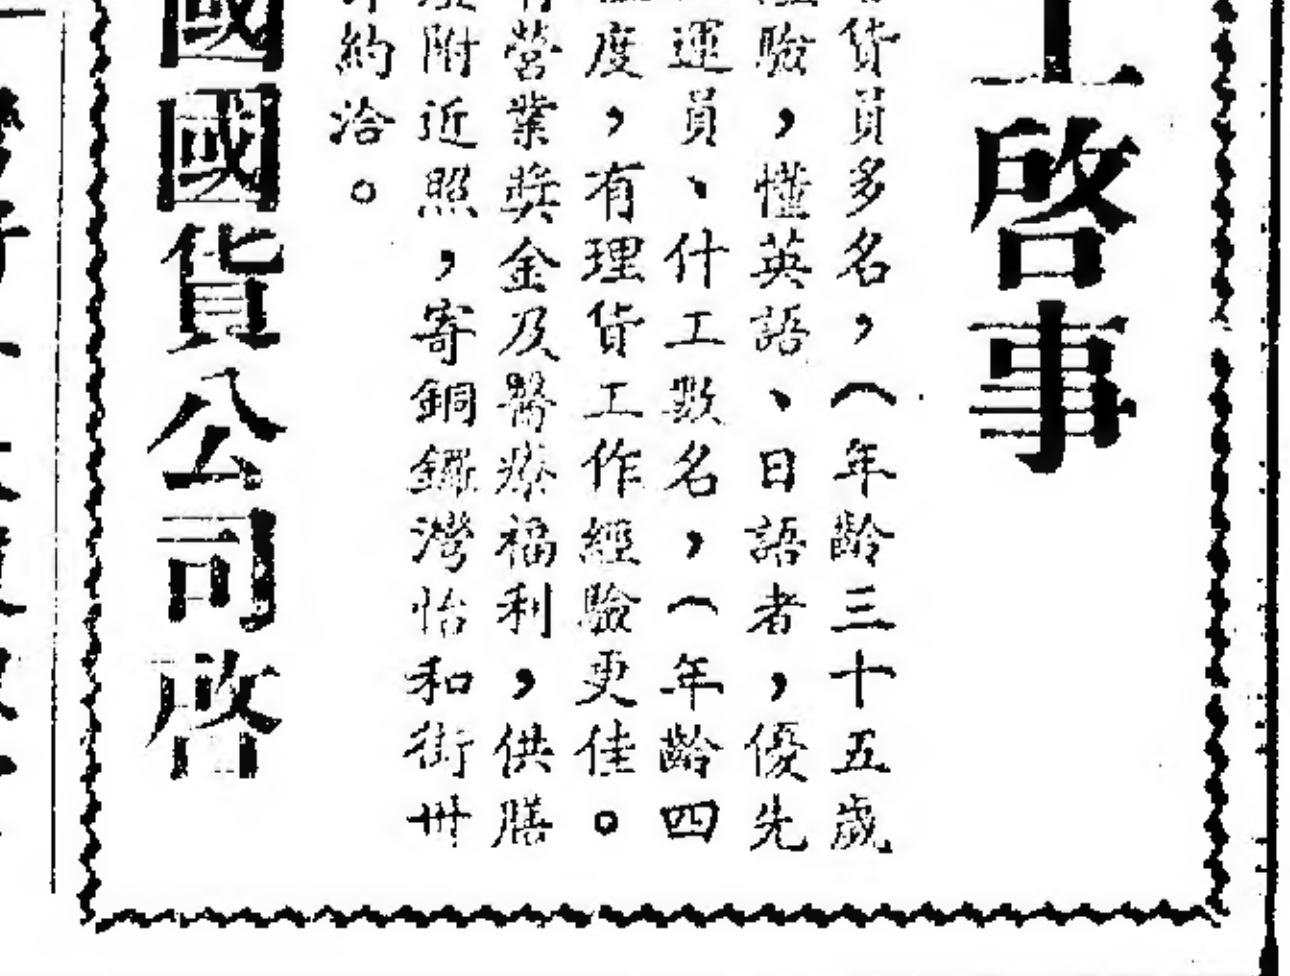 工啓事
貨員多名，（年齡三十五歲
驗，懂英語、日語者，優先
運員、什工數名，（年齡四
度，有理貨工作經驗更佳。
營業獎金及醫療福利，供膳
附近照，寄銅鑼灣怡和街卅
約洽。
國國貨公司啓